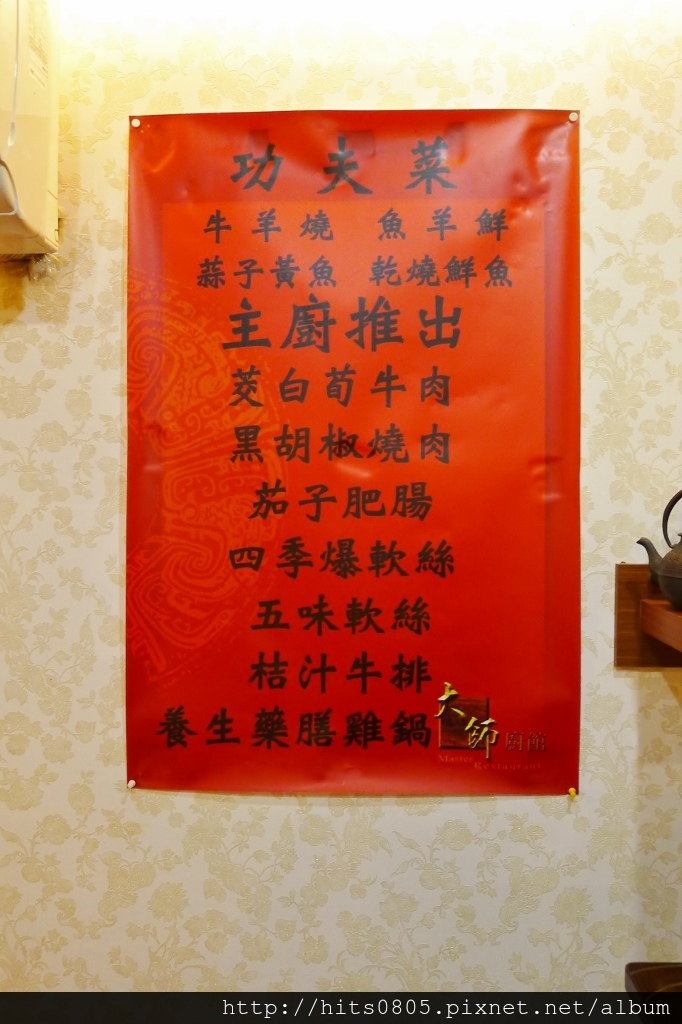 功夫菜
牛羊燒 魚羊鮮
蒜子黃魚 乾燒鮮魚
主廚推出
茭白荀牛肉
黑胡椒燒肉
茄子肥腸
四季爆軟絲
五味軟絲
桔汁牛排
養生藥膳雞鍋
大師廚館
Restaurant
http://hits0805.pixnet.net/album